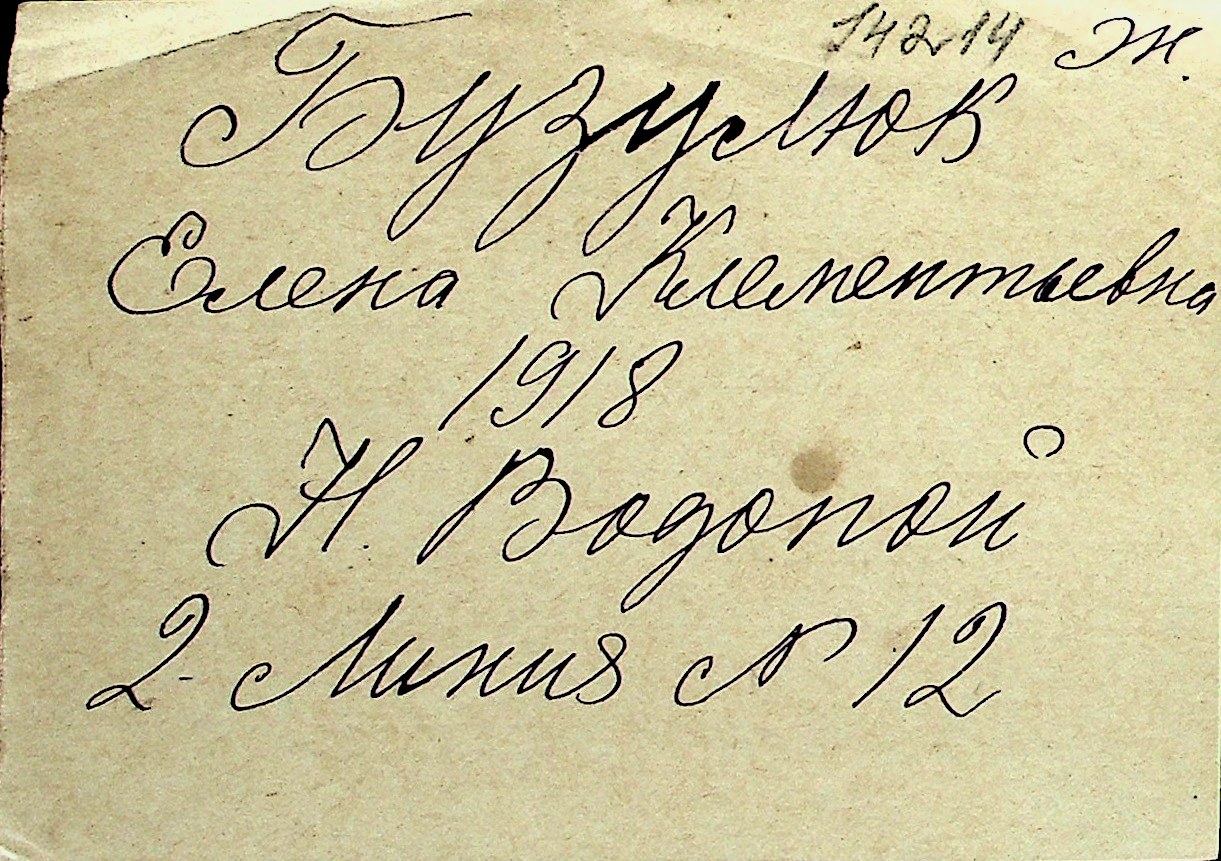 14214 Ж.
Бузулюк
Елена Клементьевна
1918
Н. Водопой
2. Линия N 12